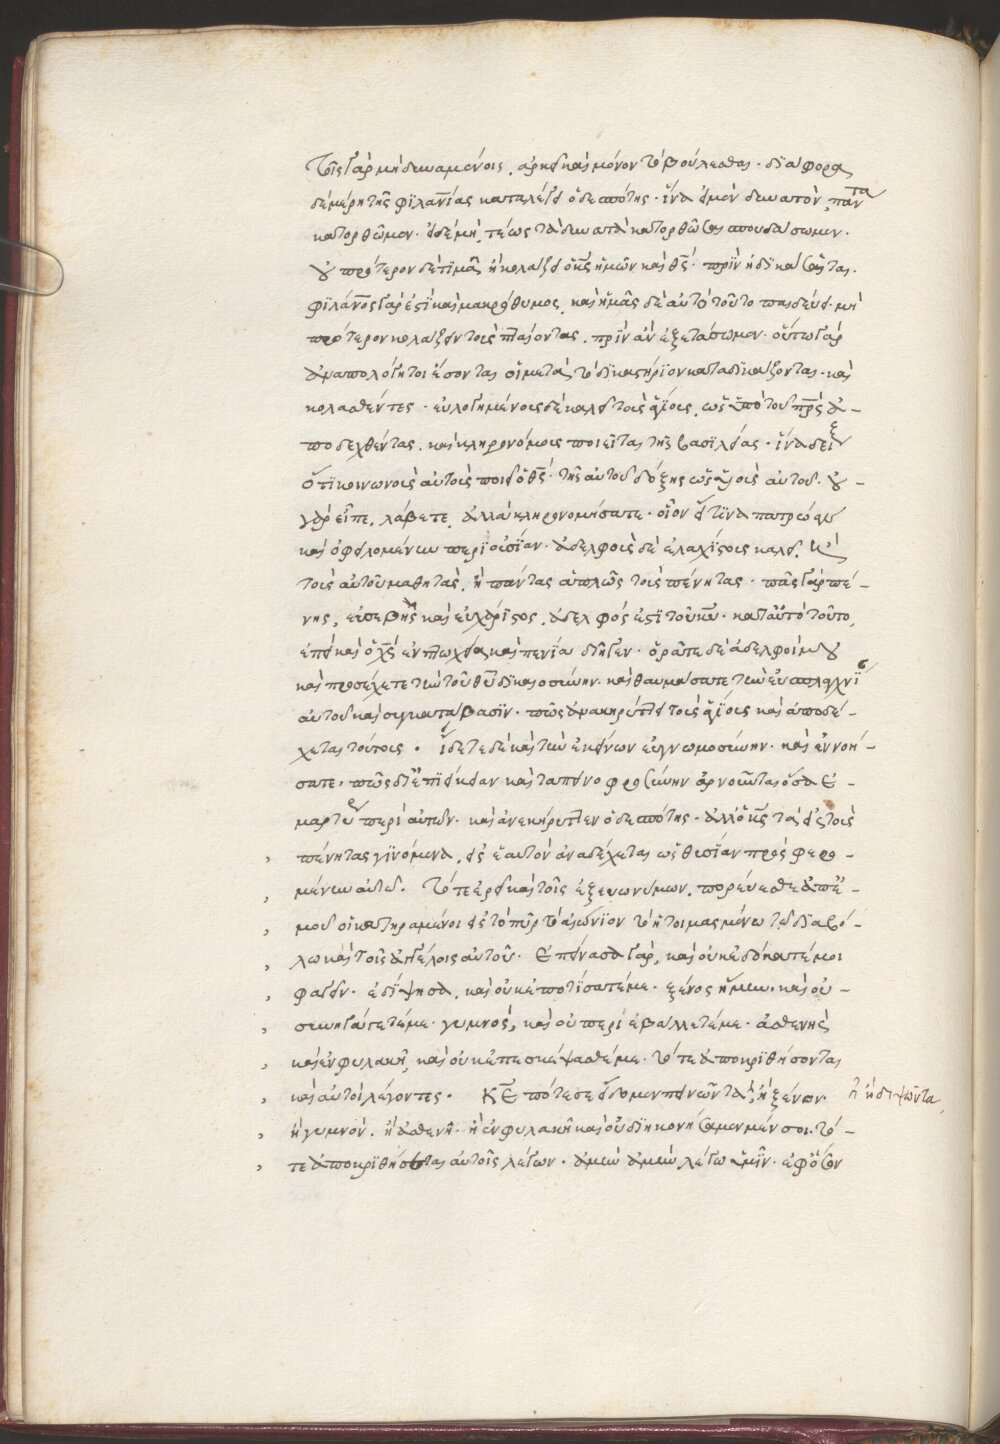 τοῖς γὰρ μὴ δυναμένοις, ἀρκεῖ καὶ μόνον τὸ βούλεσθαι· διάφορα
δὲ μέρη τῆς φιλανίας καταλέγει ὁ δεσπότης· ἵνα εἰ μὲν δυνατὸν, πάντα
κατορθῶμεν· εἰ δὲ μὴ, τέως τὰ δυνατὰ κατορθῶσαι σπουδάσωμεν·
οὐ πρότερον δὲ τιμᾶ ἢ κολάζει ὁ κς ἡμῶν καὶ θς· πρὶν ἢ δικάσηται.
φιλάνος γάρ ἐστι καὶ μακρόθυμος, καὶ ἡμᾶς δὲ αὐτὸ τοῦτο παιδεύει· μὴ
πρότερον κολάζειν τοὺς πταίοντας, πρὶν ἂν ἐξετάσωμεν· οὕτω γὰρ
ἀναπολόγητοι ἔσονται οἱ μετὰ τὸ δικαστήριον καταδικάζονται· καὶ
κολασθέντες· εὐλογημένους δὲ καλεῖ τοὺς ἁγίους, ὡς ὑπὸ τοῦ πρς ἀ-
ποδεχθέντας, καὶ κληρονόμους ποιεῖται τῆς βασιλείας· ἵνα δείξη
ὅτι κοινωνοὺς αὐτοὺς ποιεῖ ὁ θς· τῆς αὐτοῦ δόξης ὡς υἱοὺς αὐτοῦ· οὐ
γὰρ εἶπε, λάβετε, ἀλλὰ κληρονομήσατε· οἷον εἴ τινα πατρώαν
καὶ ὀφειλομένην περιουσίαν· ἀδελφοὺς δὲ ἐλαχίστους καλεῖ, ἢ
τοὺς αὐτοῦ μαθητὰς, ἢ πάντας ἁπλῶς τοὺς πένητας· πᾶς γὰρ πέ-
νης, εὐσεβὴς καὶ εὐχάριστος, ἀδελφός ἐστι τοῦ κυ· κατ' αὐτὸ τοῦτο,
ἐπεὶ καὶ ὁ χς ἐν πτωχεία καὶ πενία διῆγεν· ὁρᾶτε δὲ ἀδελφοί μου
καὶ προσέχετε τὴν τοῦ θυ δικαιοσύνην· καὶ θαυμάσατε τὴν εὐσπλαγχνίαν
αὐτοῦ καὶ συγκατάβασιν· πῶς ἀνακηρύττει τοὺς ἁγίους καὶ ἀποδέ-
χεται τούτους· ἴδετε δὲ καὶ τὴν ἐκείνων εὐγνωμοσύνην· καὶ ἐννοή-
σατε, πῶς δι' ἐπιείκειαν καὶ ταπεινοφροσύνην ἀρνοῦνται ὅσα ἐ-
μαρτύρει περὶ αὐτῶν· καὶ ἀνεκήρυττεν ὁ δεσπότης· ἀλλ' ὁ κς τὰ εἰς τοὺς
πένητας γινόμενα, εἰς ἑαυτὸν ἀναδέχεται ὡς θυσίαν προσφερο-
μένην αὐτῷ. Τότε ἐρεῖ καὶ τοῖς ἐξ εὐωνύμων, πορεύεσθε ἀπ' ἐ-
μοῦ οἱ κατηραμένοι εἰς τὸ πῦρ τὸ αἰώνιον τὸ ἡτοιμασμένον τῷ διαβό-
λῳ καὶ τοῖς ἀγγέλοις αὐτοῦ. Ἐπείνασα γὰρ, καὶ οὐκ ἐδώκατέ μοι
φαγεῖν· ἐδίψησα, καὶ οὐκ ἐποτίσατέ με· ξένος ἤμην, καὶ οὐ-
συνηγάγετέ με· γυμνὸς, καὶ οὐ περιεβάλλετέ με· ἀσθενὴς
καὶ ἐν φυλακῇ, καὶ οὐκ ἐπεσκέψασθέ με· τότε ἀποκριθήσονται
καὶ αὐτοὶ λέγοντες· Κε πότε σε εἴδομεν πεινῶντα, ἢ ξένον· ἢ διψῶντα,
ἢ γυμνὸν, ἢ ἀσθενῆ· ἢ ἐν φυλακῇ καὶ οὐ διηκονήσαμέν σοι· τό-
τε ἀποκριθήσεται αὐτοῖς λέγων· ἀμὴν ἀμὴν λέγω ὑμῖν· ἐφ' ὅσον